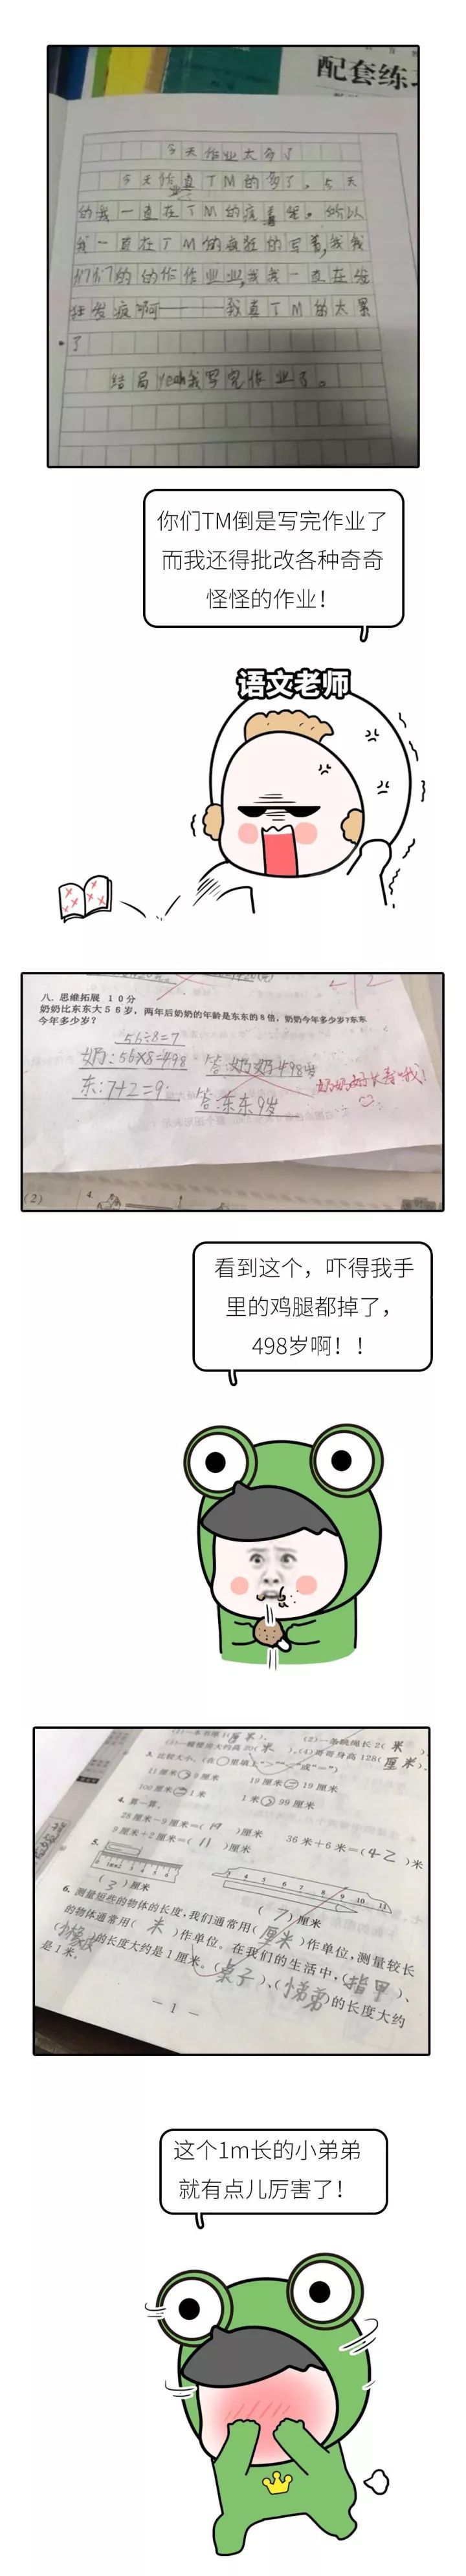 配套练习
今天作业太多了
今天作业真TM的多了。今天
的我一直在TM的疯着呢。所以
我一直在TM的疯狂的写着,我我
们们的的作作业业,我我一直在给
狂发疯啊——我真TM的太累
了
结局yeah我写完作业了。
你们TM倒是写完作业了
而我还得批改各种奇奇
怪怪的作业！
语文老师
八. 思维拓展 10分
奶奶比东东大56岁，两年后奶奶的年龄是东东的8倍，奶奶今年多少岁?东东
今年多少岁?
56÷8=7
奶:56×8=498 答:奶奶498岁
东:7+2=9 答:东东9岁
奶奶好长寿哦!
(2) 4.
看到这个，吓得我手
里的鸡腿都掉了，
498岁啊！！
(2)一条跳绳长2(米)
(4)哥哥身高128(厘米)。
3. 比较大小。(在○里填">""<"或"=")
11厘米>9厘米 19厘米=19厘米
100厘米=1米 1米>99厘米
4. 算一算。
28厘米-9厘米=(19)厘米 36米+6米=(42)米
9厘米+2厘米=(11)厘米
5.
(3)厘米 (7)厘米
6. 测量短些的物体的长度，我们通常用(厘米)作单位，测量较长
的物体通常用(米)作单位。在我们的生活中，(指甲)、
(小橡皮)的长度大约是1厘米。(桌子)、(弟弟)的长度大约
是1米。
— 1 —
这个1m长的小弟弟
就有点儿厉害了！